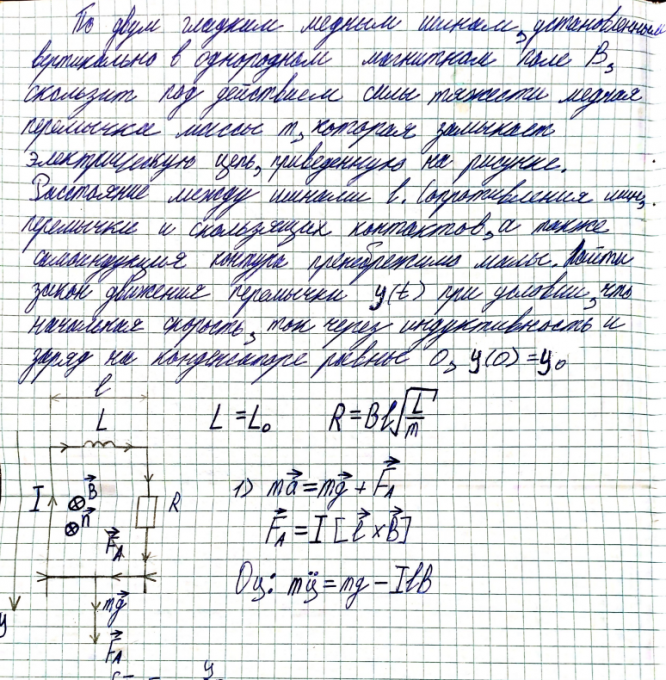 По двум гладким медным шинам, установленным
вертикально в однородном магнитном поле B,
скользит под действием силы тяжести медная
перемычка массы m, которая замыкает
электрическую цепь, приведенную на рисунке.
Расстояние между шинами l. Сопротивления шин,
перемычки и скользящих контактов, а также
самоиндукция контура пренебрежимо малы. Найти
закон движения перемычки y(t) при условии, что
начальная скорость, ток через индуктивность и
заряд на конденсаторе равные 0, y(0)=y₀
l
L
L = L₀ R = Bl√(L/m)
I
B⃗
n⃗
R
F⃗_A
1) ma⃗ = mg⃗ + F⃗_A
F⃗_A = I [l⃗ × B⃗]
Oy: mÿ = mg − IlB
mg⃗
y
F⃗_A